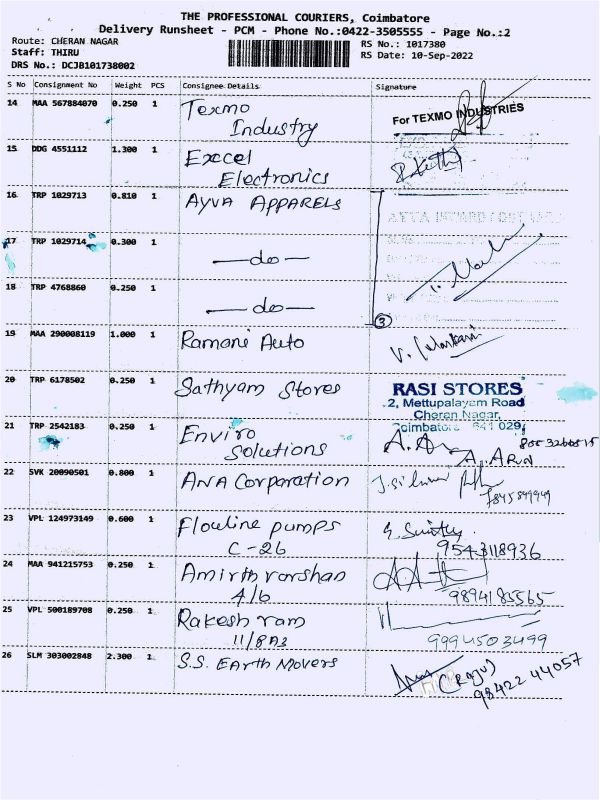 THE PROFESSIONAL COURIERS, Coimbatore
Delivery Runsheet - PCM - Phone No.:0422-3505555 - Page No.:2
Route: CHERAN NAGAR
Staff: THIRU
DRS No.: DCJB101738002
RS No.: 1017380
RS Date: 10-Sep-2022
S No Consignment No Weight PCS Consignee Details Signature
14 MAA 567884070 0.250 1 Texmo Industry For TEXMO INDUSTRIES
15 DDG 4551112 1.300 1 Excel Electronics
16 TRP 1029713 0.810 1 AYVA APPARELS
17 TRP 1029714 0.300 1 —do—
18 TRP 4768860 0.250 1 —do— 3
19 MAA 290008119 1.000 1 Ramani Auto
20 TRP 6178502 0.250 1 Sathyam Stores
RASI STORES
2, Mettupalayam Road
Cheran Nagar,
Coimbatore 641 029
21 TRP 2542183 0.250 1 Enviro Solutions A. ARUN
22 SVK 20090501 0.800 1 ANA Corporation
23 VPL 124973149 0.600 1 Flowline pumps
C-26 9543118936
24 MAA 941215753 0.250 1 Amirth varshan
4/6 9894185565
25 VPL 500189708 0.250 1 Rakesh ram
11/8A3 9994503499
26 SLM 303002848 2.300 1 S.S. Earth Movers (Raju)
98422 44057